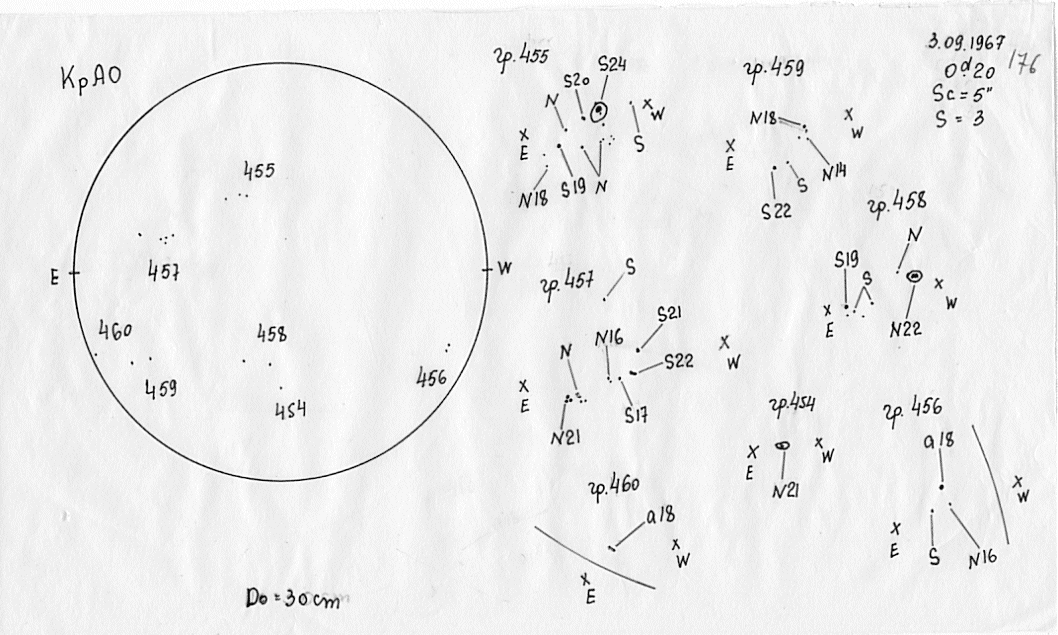 КрАО
455
E
W
457
460
458
459
456
454
D⊙ = 30 cm
3.09.1967
0ᵈ20
Sc = 5"
S = 3
176
гр.455
S20
S24
N
x
W
x
E
S
N18
S19
N
гр.459
N18
x
W
x
E
N14
S
S22
гр.458
N
S19
S
x
W
x
E
N22
гр.457
S
S21
N16
N
S22
x
W
x
E
S17
N21
гр.454
x
W
x
E
N21
гр.456
a18
x
W
x
E
S
N16
гр.460
a18
x
W
x
E